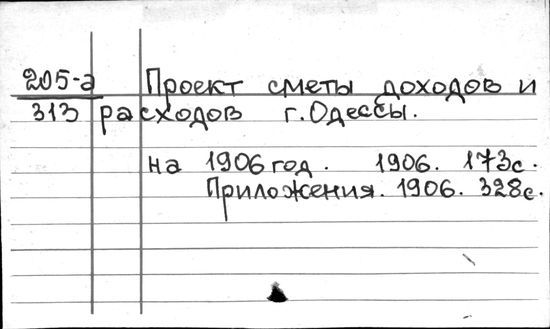 205-а Проект сметы доходов и
313 расходов г. Одессы.
на 1906 год. 1906. 173с.
Приложения. 1906. 328с.